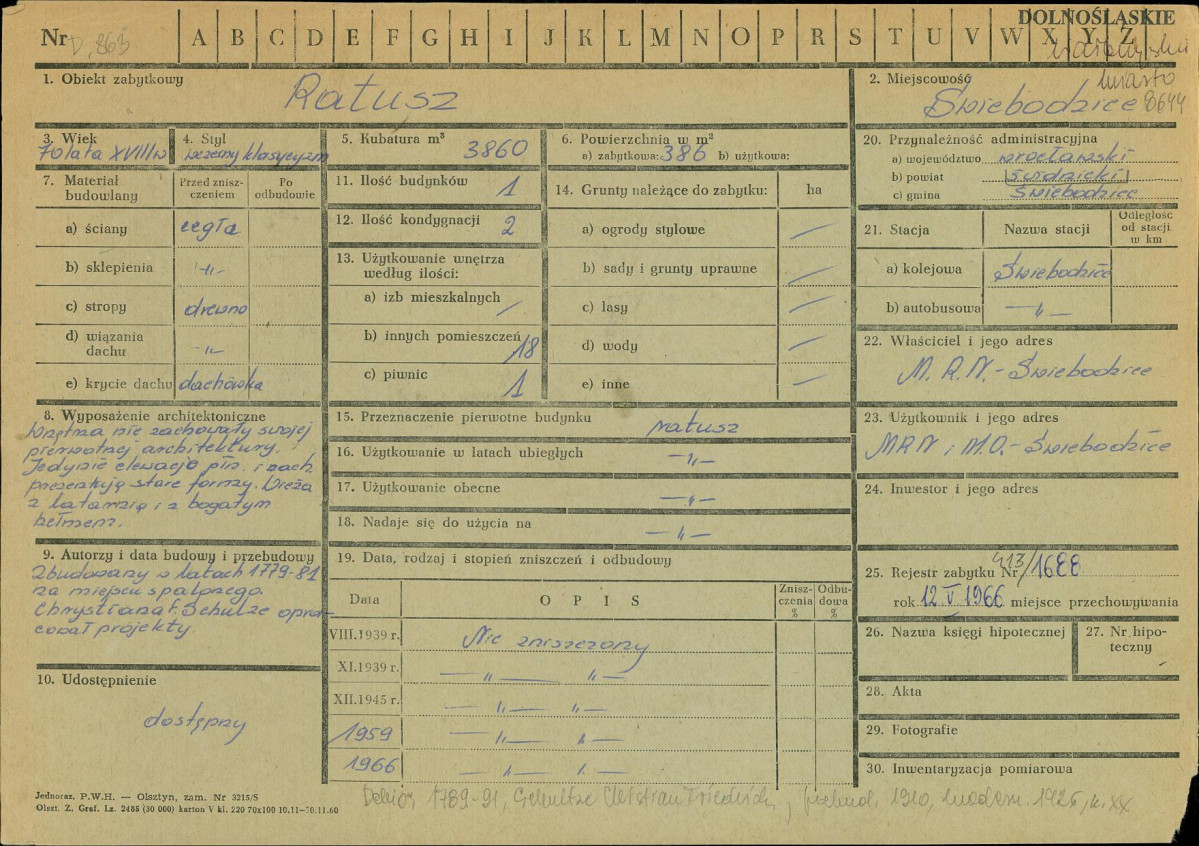 DOLNOŚLĄSKIE
Nr D. 863 A B C D E F G H I J K L M N O P R S T U V W X Y Z
miasto
8644
1. Obiekt zabytkowy
Ratusz
2. Miejscowość
Świebodzice
3. Wiek
70 lata XVIII w
4. Styl
wczesny klasycyzm
5. Kubatura m³ 3860
6. Powierzchnia w m²
a) zabytkowa: 386 b) użytkowa:
7. Materiał budowlany
Przed zniszczeniem
Po odbudowie
a) ściany cegła
b) sklepienia -„-
c) stropy drewno
d) wiązania dachu -„-
e) krycie dachu dachówka
8. Wyposażenie architektoniczne
Wnętrza nie zachowały swojej
pierwotnej architektury.
Jedynie elewacje płn. i zach
prezentują stare formy. Wieża
z latarnią i z bogatym
hełmem.
9. Autorzy i data budowy i przebudowy
Zbudowany w latach 1779-81
na miejscu spalonego.
Chrystiana F. Schulze opra-
cował projekty
10. Udostępnienie
dostępny
11. Ilość budynków 1
12. Ilość kondygnacji 2
13. Użytkowanie wnętrza
według ilości:
a) izb mieszkalnych /
b) innych pomieszczeń 18
c) piwnic 1
14. Grunty należące do zabytku: ha
a) ogrody stylowe —
b) sady i grunty uprawne —
c) lasy —
d) wody —
e) inne —
15. Przeznaczenie pierwotne budynku ratusz
16. Użytkowanie w latach ubiegłych -„-
17. Użytkowanie obecne -„-
18. Nadaje się do użycia na -„-
19. Data, rodzaj i stopień zniszczeń i odbudowy
Data O P I S Zniszczenia % Odbudowa %
VIII.1939 r. Nie zniszczony
XI.1939 r. — „ — „ —
XII.1945 r. — „ — „ —
1959 — „ — „ —
1966 — „ — „ —
20. Przynależność administracyjna
a) województwo wrocławski
b) powiat świdnicki
c) gmina Świebodzice
21. Stacja Nazwa stacji Odległość od stacji w km
a) kolejowa Świebodzice
b) autobusowa -„-
22. Właściciel i jego adres
M.R.N.- Świebodzice
23. Użytkownik i jego adres
MRN i M.O.- Świebodzice
24. Inwestor i jego adres
25. Rejestr zabytku Nr 413/1688
rok 12 V 1966 miejsce przechowywania
26. Nazwa księgi hipotecznej
27. Nr hipoteczny
28. Akta
29. Fotografie
30. Inwentaryzacja pomiarowa
Jednoraz. P.W.H. — Olsztyn, zam. Nr 3215/S
Olszt. Z. Graf. Lz. 2485 (30 000) karton V kl. 220 70x100 10.11—30.11.60
1789-91, Schultze Christian Friedrich, przebud. 1910, modern. 1925, k. XX